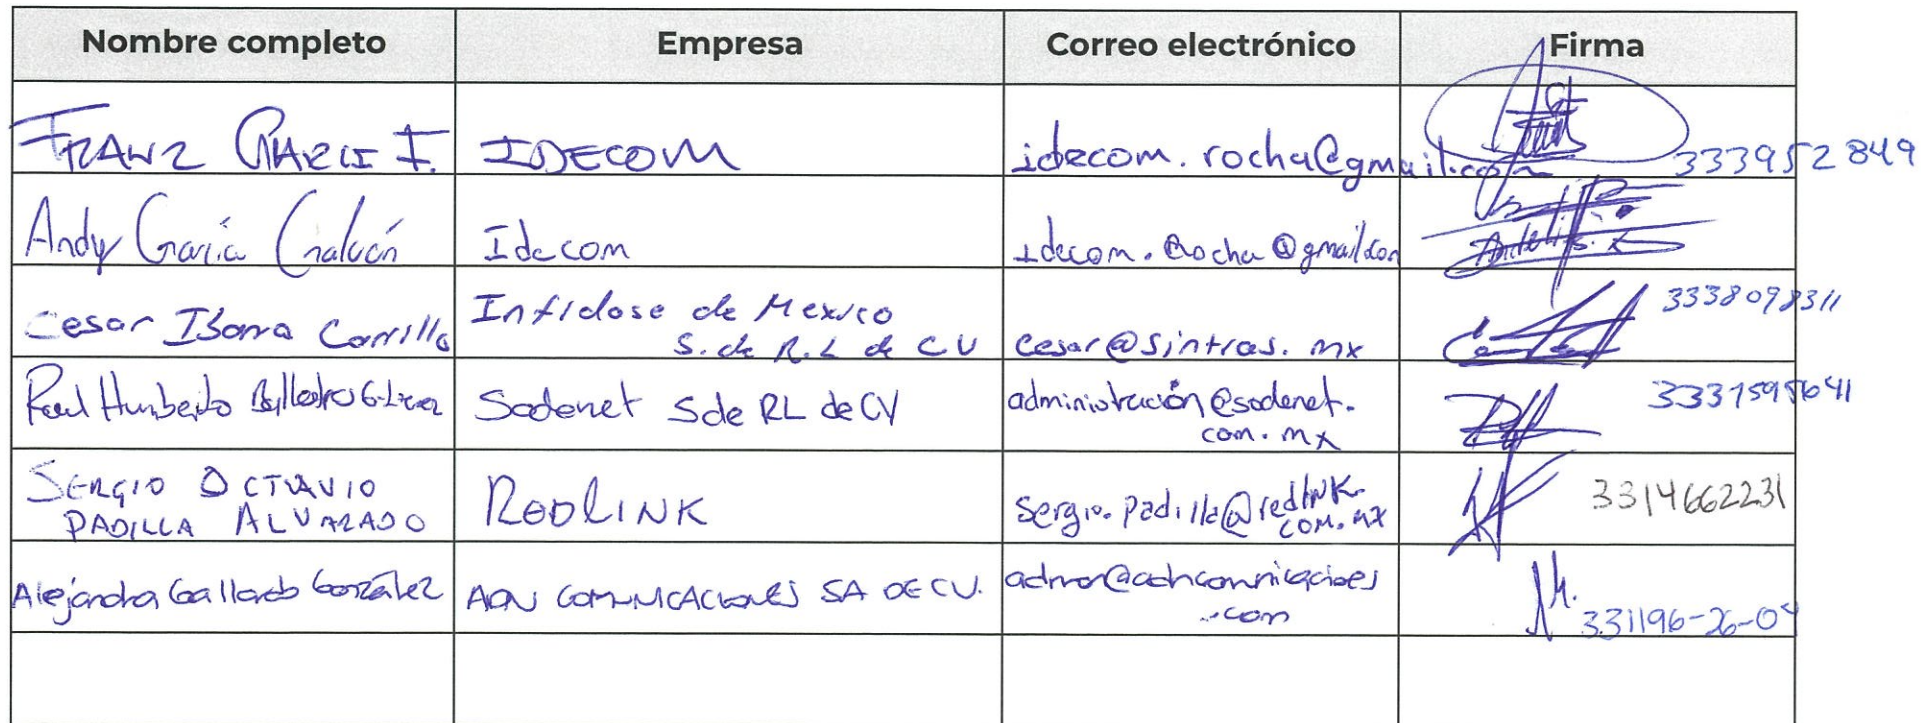 Nombre completo Empresa Correo electrónico Firma
FRANZ I. IDECOM idecom.rocha@gmail.com 333952849
Andy Garcia Idecom Idecom.Rocha@gmail.com
Cesar Ibarra Carrillo Infidose de Mexico
S. de R.L de CV cesar@sintras.mx 3338098311
Raul Humberto Sodenet S de RL de CV administración@sodenet.
com.mx 3331595641
SERGIO OCTAVIO
PADILLA ALVARADO REDLINK sergio.padilla@redlink.
com.mx 3314662231
Alejandra Gallardo González ADN COMUNICACIONES SA DE CV. admon@adncomunicaciones
.com 331196-26-04